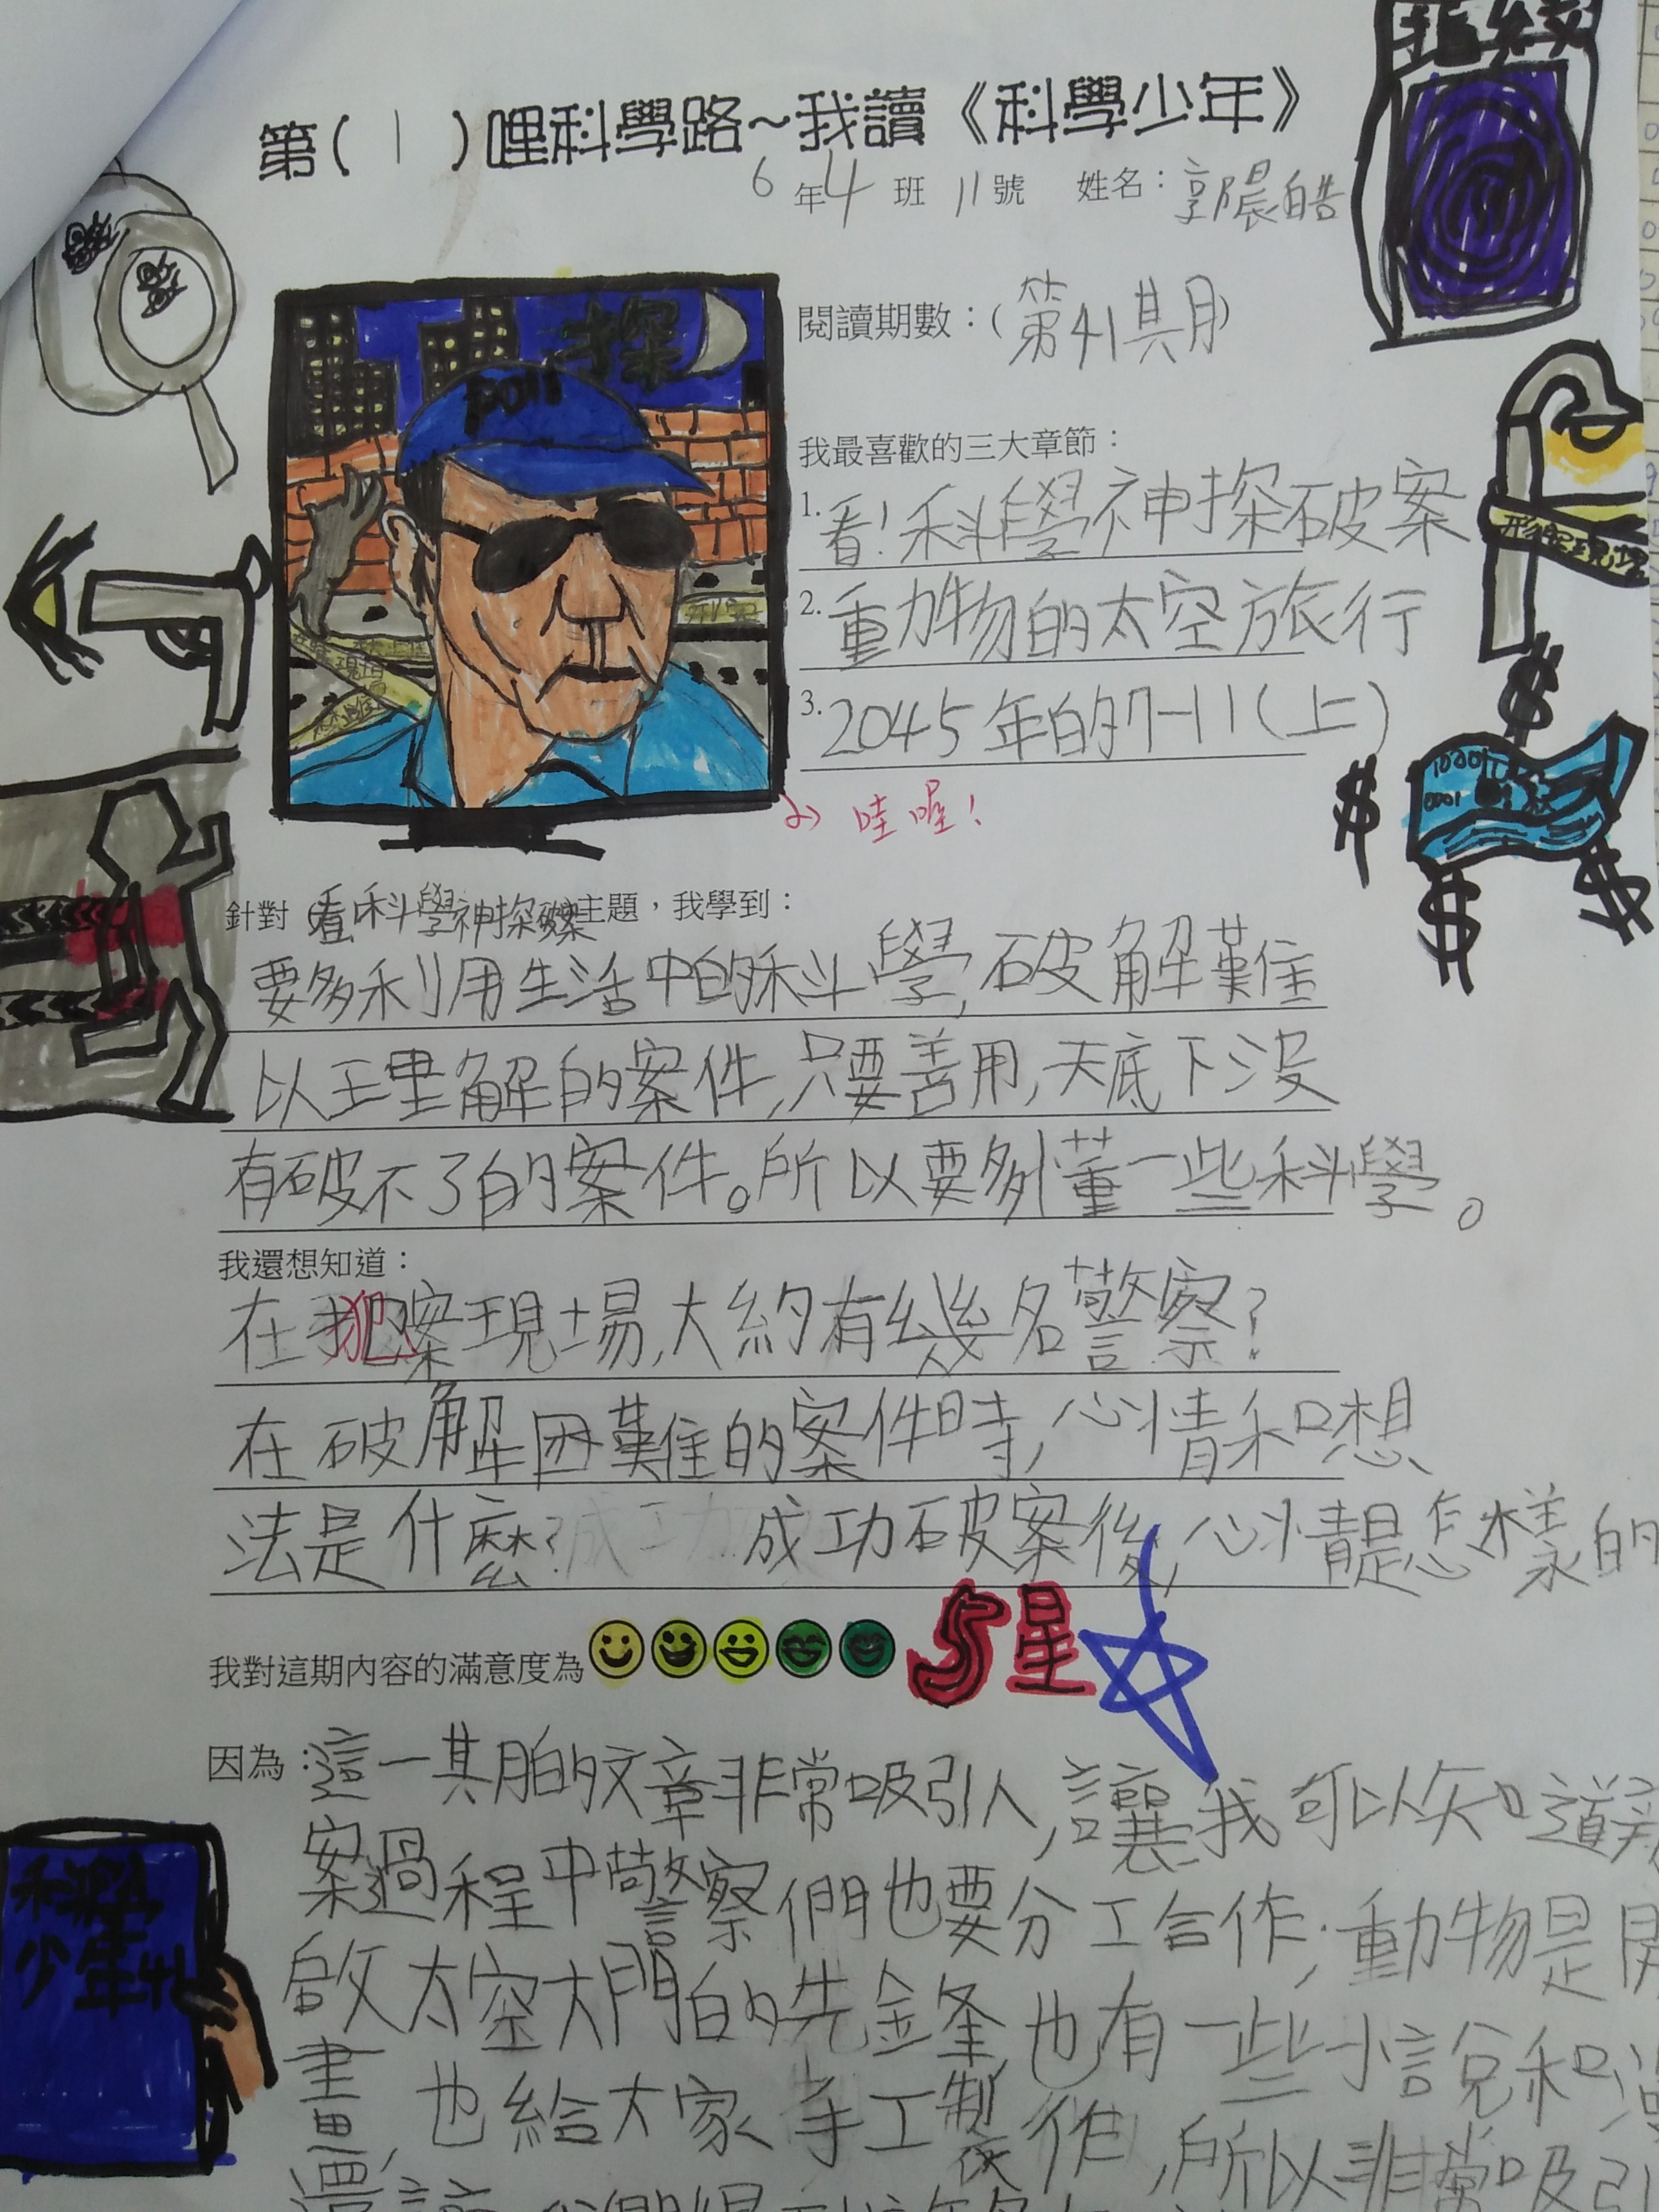 指紋
第(1)哩科學路~我讀《科學少年》
6年4班11號 姓名：郭晨皓
閱讀期數：(第41期)
探
我最喜歡的三大章節：
1.看!科學神探破案
2.動物的太空旅行
3.2045年的7-11(上)
哇喔!
針對(看!科學神探破案主題，我學到：
要多利用生活中的科學,破解難
以理解的案件,只要善用,天底下沒
有破不了的案件。所以要多懂一些科學。
我還想知道：
在犯案現場,大約有幾名警察?
在破解困難的案件時,心情和想
法是什麼?成功破案後,心情是怎樣的
我對這期內容的滿意度為 5星
因為：這一期的文章非常吸引人,讓我可以知道辦
案過程中警察們也要分工合作;動物是開
啟太空大門的先鋒,也有一些小說和漫
畫,也給大家手工製作,所以非常吸引
科學
少年41